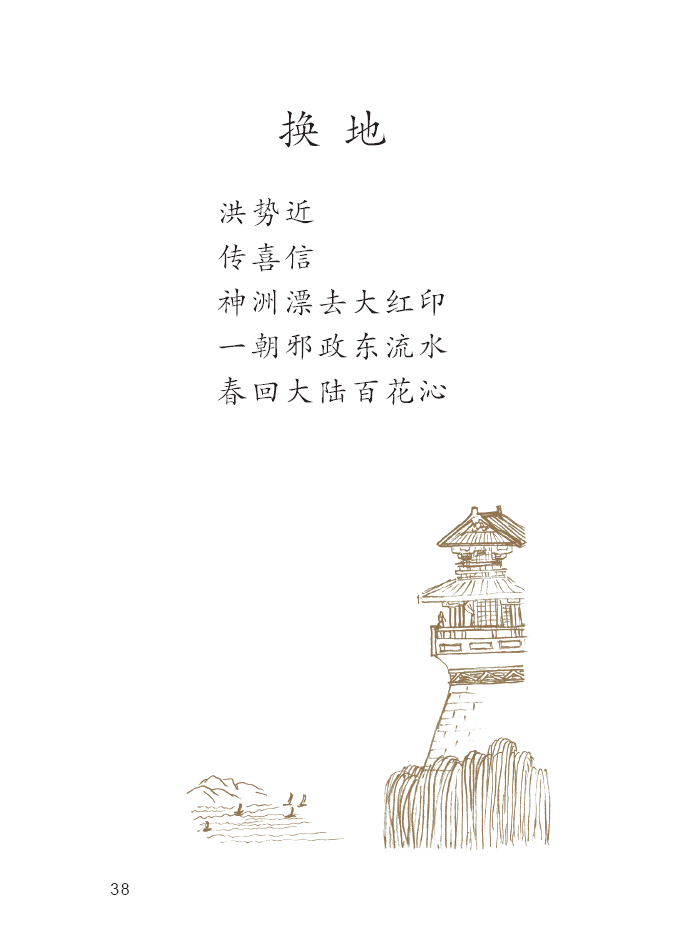 换 地
洪势近
传喜信
神洲漂去大红印
一朝邪政东流水
春回大陆百花沁
38